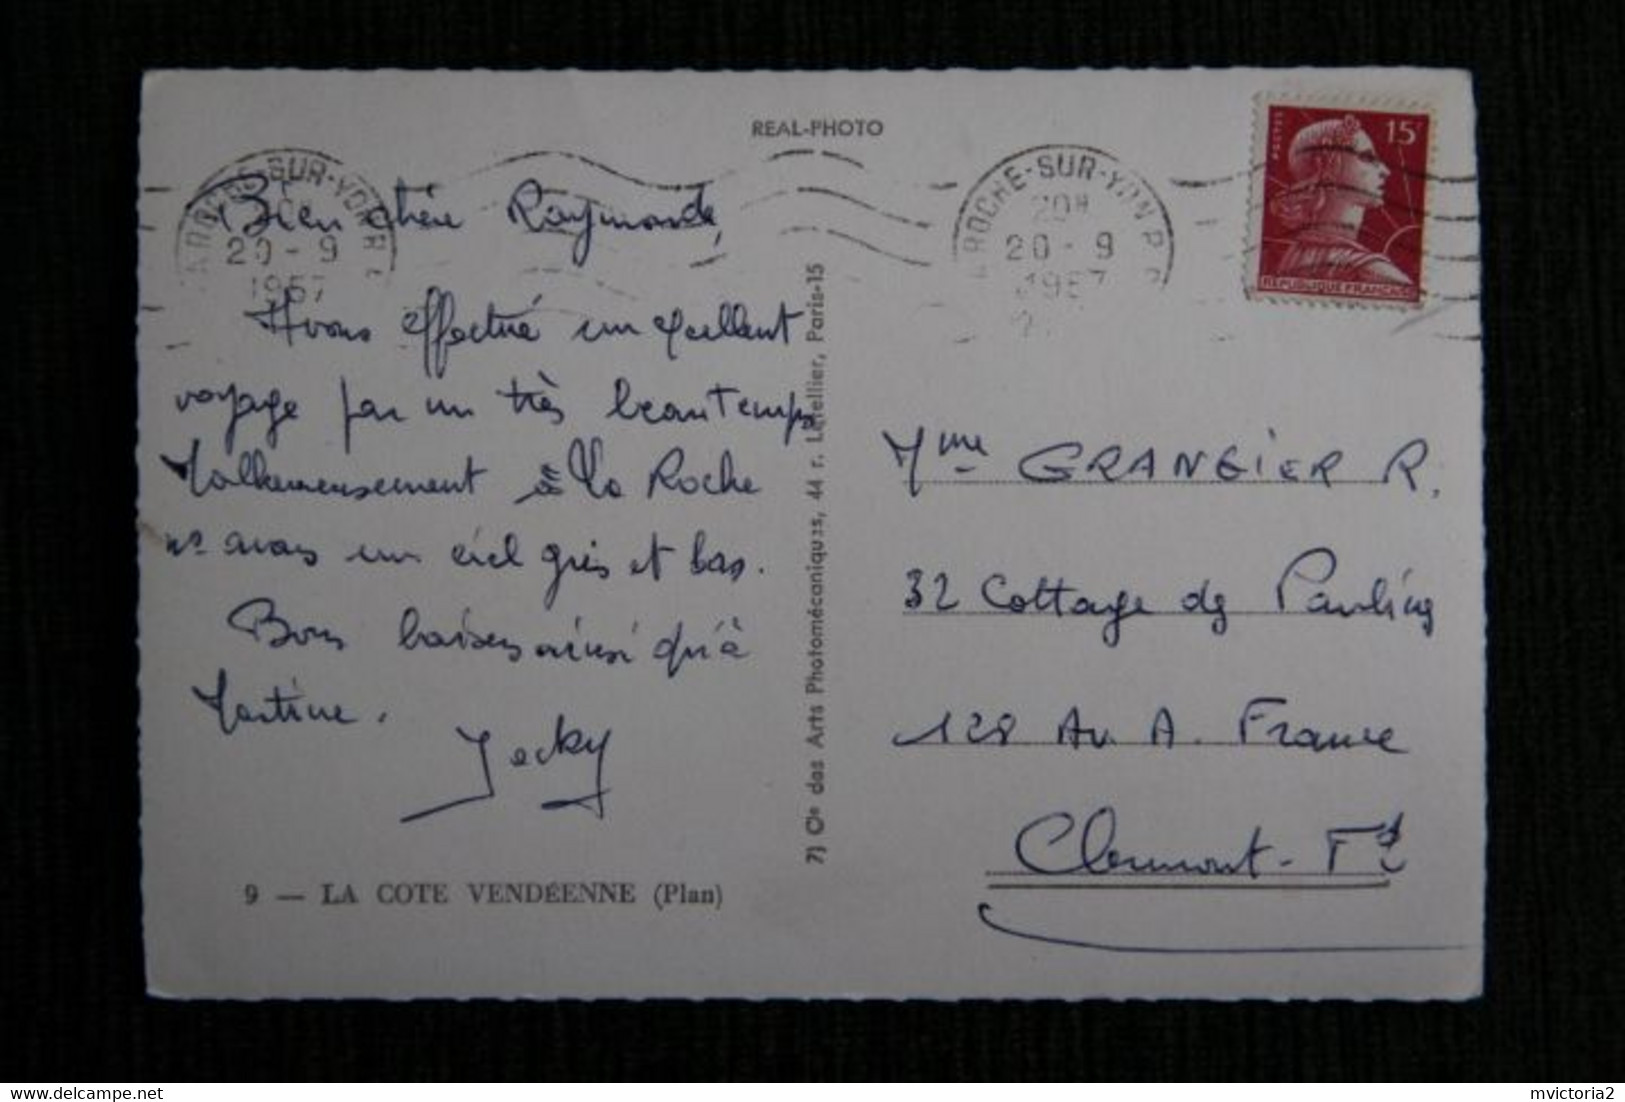 REAL-PHOTO
LA ROCHE-SUR-YON R.P.
20 - 9
1957
ROCHE-SUR-YON R.P.
20H
20 - 9
1957
POSTES
15F
REPUBLIQUE FRANCAISE
Bien chère Raymonde,
Avons effectué un excellent
voyage par un très beau temps
Malheureusement à la Roche
ns avons un ciel gris et bas.
Bons baisers ainsi qu'à
Martine.
Jacky
9 — LA COTE VENDÉENNE (Plan)
7) Cie des Arts Photomécaniques, 44 r. Letellier, Paris-15
Mme GRANGIER R.
32 Cottage des Paulines
128 Av. A. France
Clermont-Fd
mvictoria2